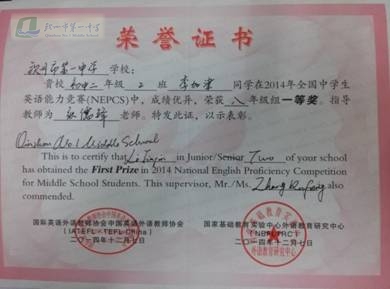 钦州市第一中学
荣誉证书
钦州市第一中学 学校：
贵校 初中二 年级 2 班 同学在2014年全国中学生
英语能力竞赛(NEPCS)中，成绩优异，荣获 八 年级组一等奖。指导
教师为 老师。特发此证，以示表彰。
Middle School
This is to certify that Li in Junior/Senior Two of your school
has obtained the First Prize in 2014 National English Proficiency Competition
for Middle School Students. This supervisor, Mr./Ms. Zhang also
commended.
国际英语外语教师协会中国英语外语教师协会
(IATEFL-TEFL China)
二〇一四年十二月七日
国家基础教育实验中心外语教育研究中心
二〇一四年十二月七日
外语教育研究中心